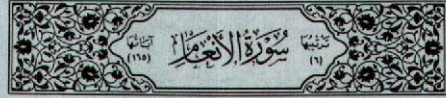 ترتيبها
(٦)
سُورَةُ الأَنْعَامِ
آياتها
(١٦٥)